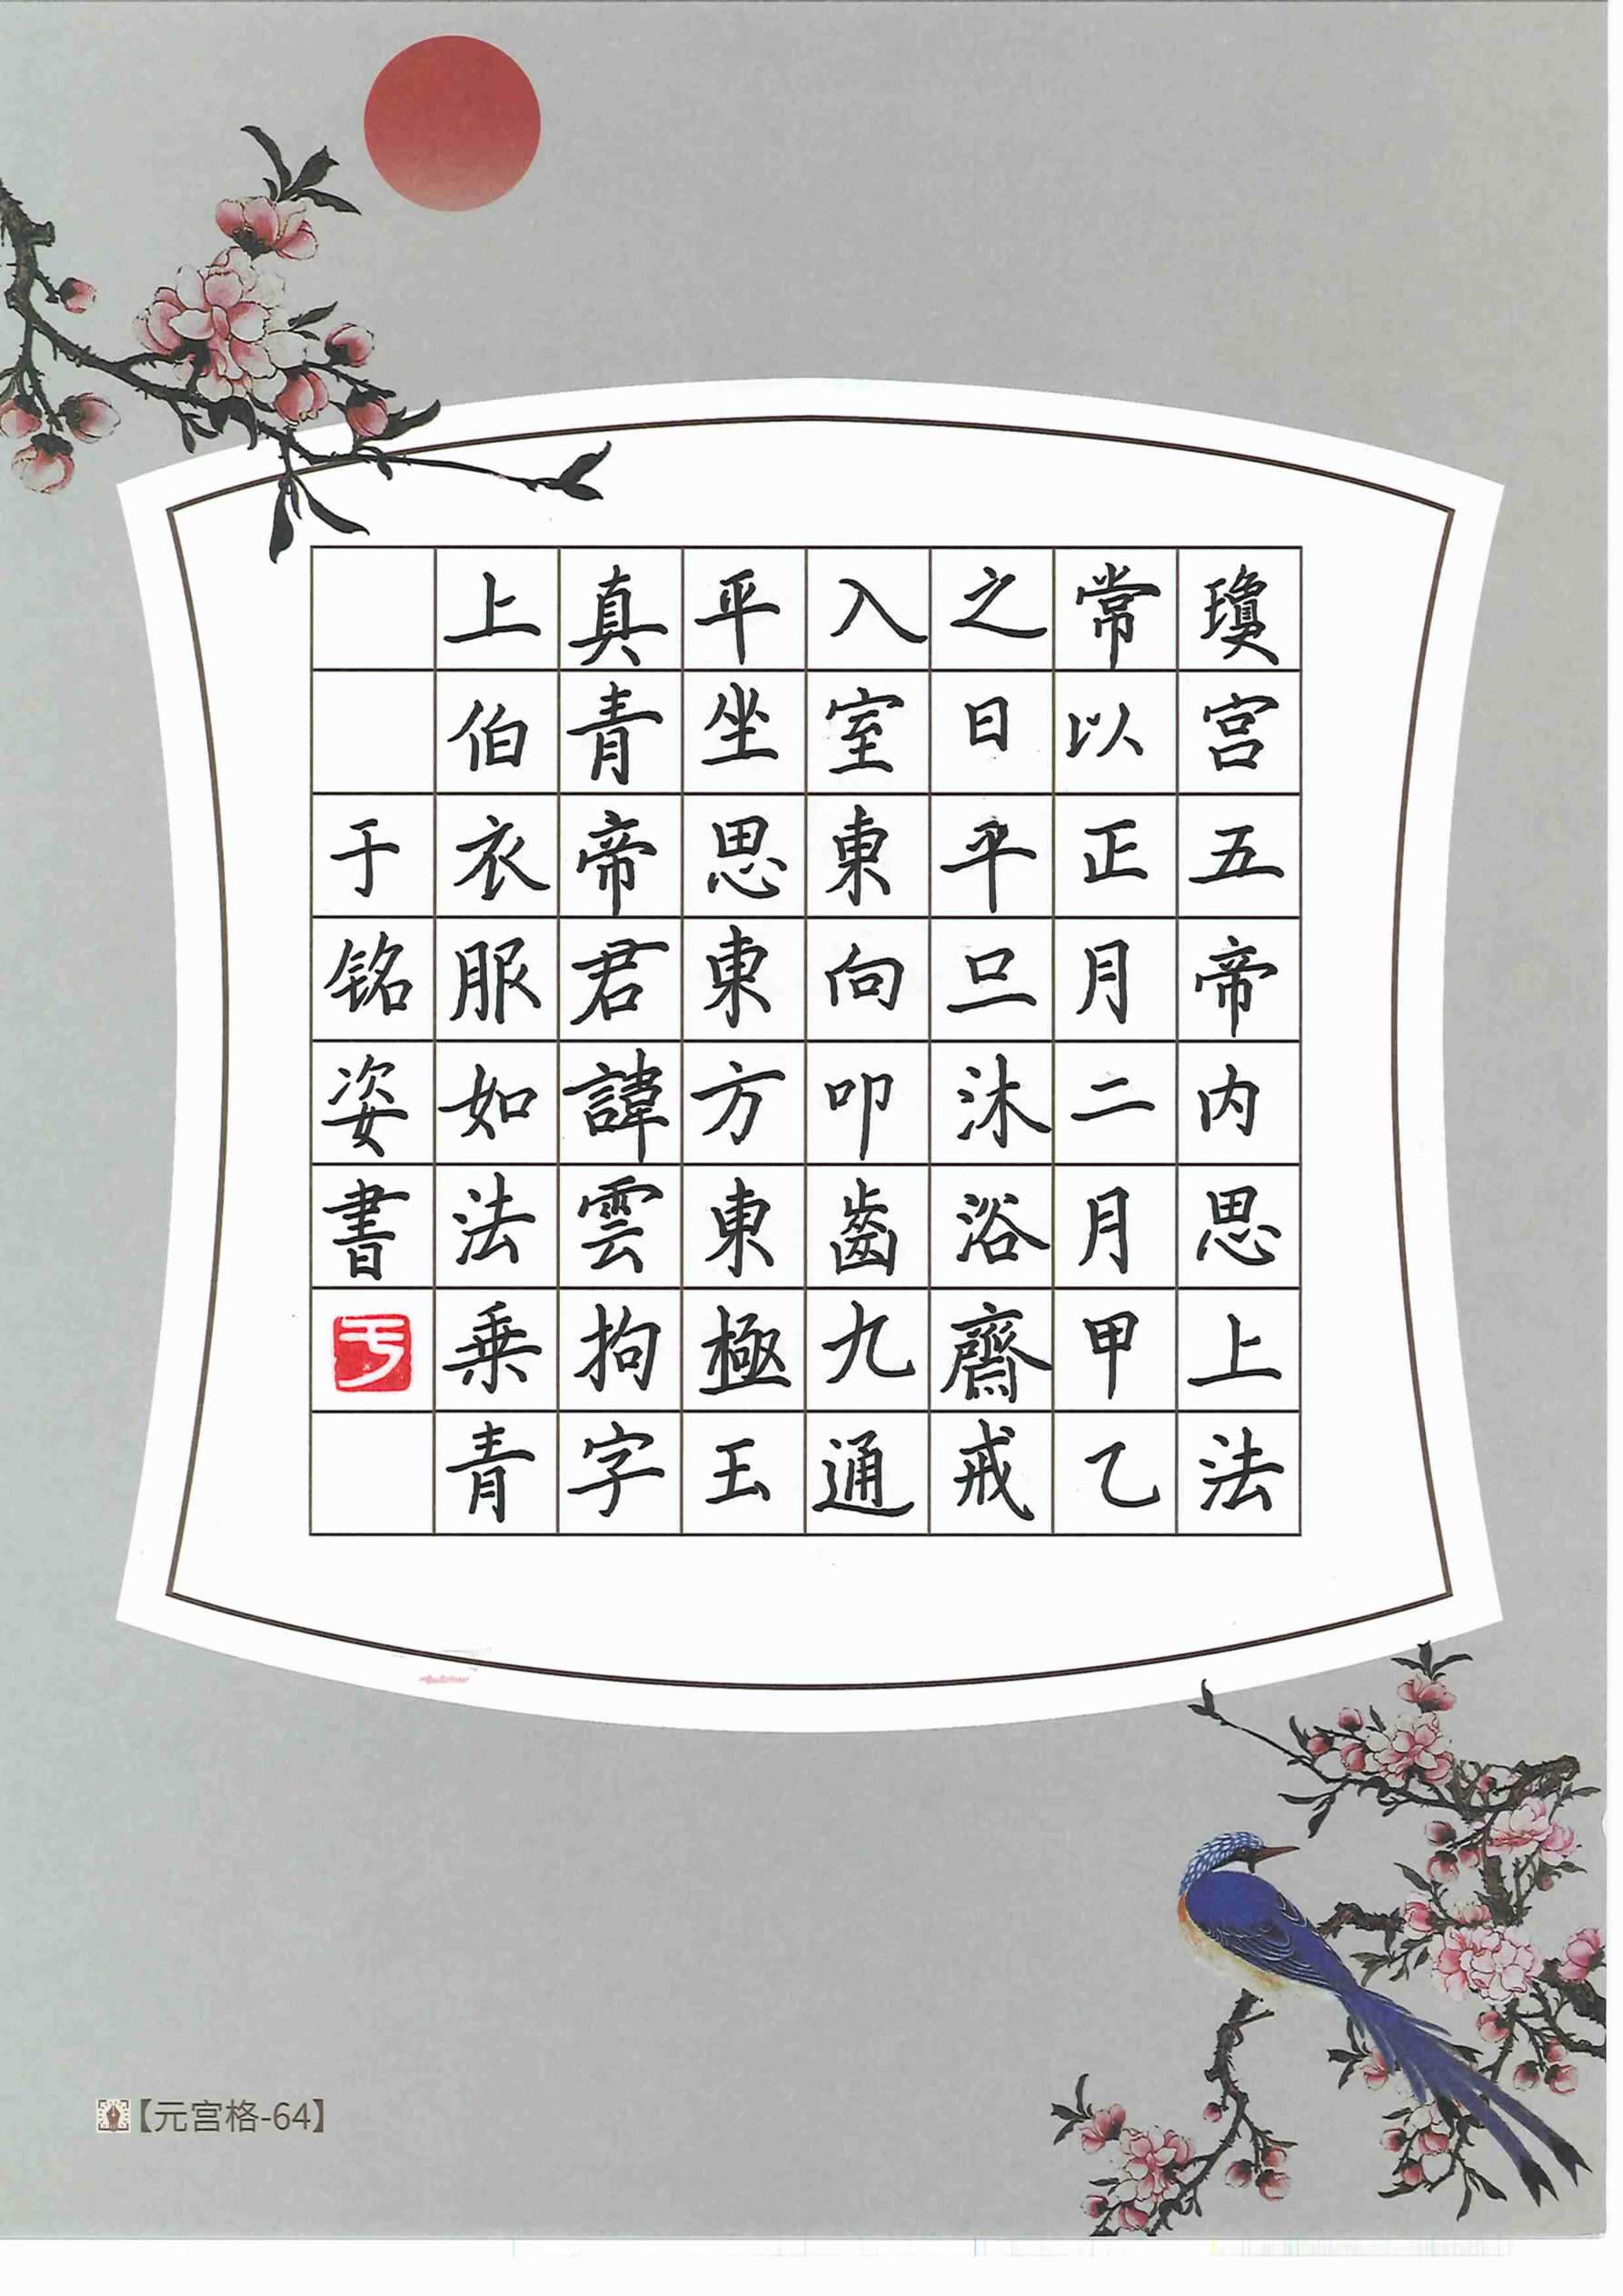 瓊宫五帝内思上法
常以正月二月甲乙
之日平旦沐浴齋戒
入室東向叩齒九通
平坐思東方東極玉
真青帝君諱雲拘字
上伯衣服如法乗青
于铭姿書
【元宫格-64】